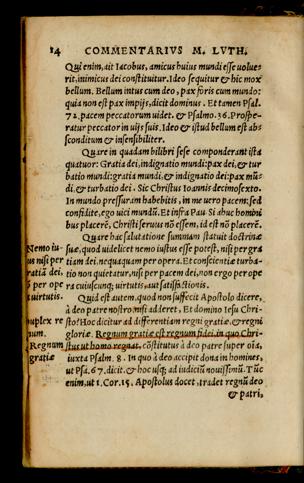 14 COMMENTARIVS M. LVTH.
Qui enim, ait Iacobus, amicus huius mundi esse volue-
rit, inimicus dei constituitur. Ideo sequitur & hic mox
bellum. Bellum intus cum deo, pax foris cum mundo:
quia non est pax impijs, dicit dominus. Et tamen Psal.
72. pacem peccatorum uidet. & Psalmo. 36. Prospe-
ratur peccator in uijs suis. Ideo & istud bellum est ab-
sconditum & insensibiliter.
Quare in quadam bilibri sese componderant ista
quatuor: Gratia dei, indignatio mundi: pax dei, & tur
batio mundi: gratia mundi, & indignatio dei: pax mũ-
di, & turbatio dei. Sic Christus Ioannis decimosexto.
In mundo pressuram habebitis, in me uero pacem: sed
confidite, ego uici mundũ. Et infra Pau. Si adhuc homini
bus placerẽ, Christi seruus nõ essem, id est nõ placerẽ.
Quare hac salutatione summam statuit doctrinæ
suæ, quod uidelicet nemo iustus esse potest, nisi per gra
tiam dei, nequaquam per opera. Et conscientiæ turba-
tio non quietatur, nisi per pacem dei, non ergo per ope
ra cuiuscunq; uirtutis, aut satisfactionis.
Nemo iu-
us nisi per
ratiã dei.
per ope
uirtutis.
Quid est autem, quod non suffecit Apostolo dicere,
à deo patre nostro, nisi adderet, Et domino Iesu Chri-
sto? Hoc dicitur ad differentiam regni gratiæ, & regni
gloriæ. Regnum gratiæ est regnum fidei, in quo Chri-
stus ut homo regnat, cõstitutus à deo patre super oĩa,
iuxta Psalm. 8. In quo à deo accipit dona in homines,
ut Psa. 67. dicit. & hoc usq; ad iudiciũ nouissimũ. Tũc
enim, ut 1. Cor. 15. Apostolus docet, tradet regnũ deo
uplex re
num.
Regnum
gratiæ
& patri,